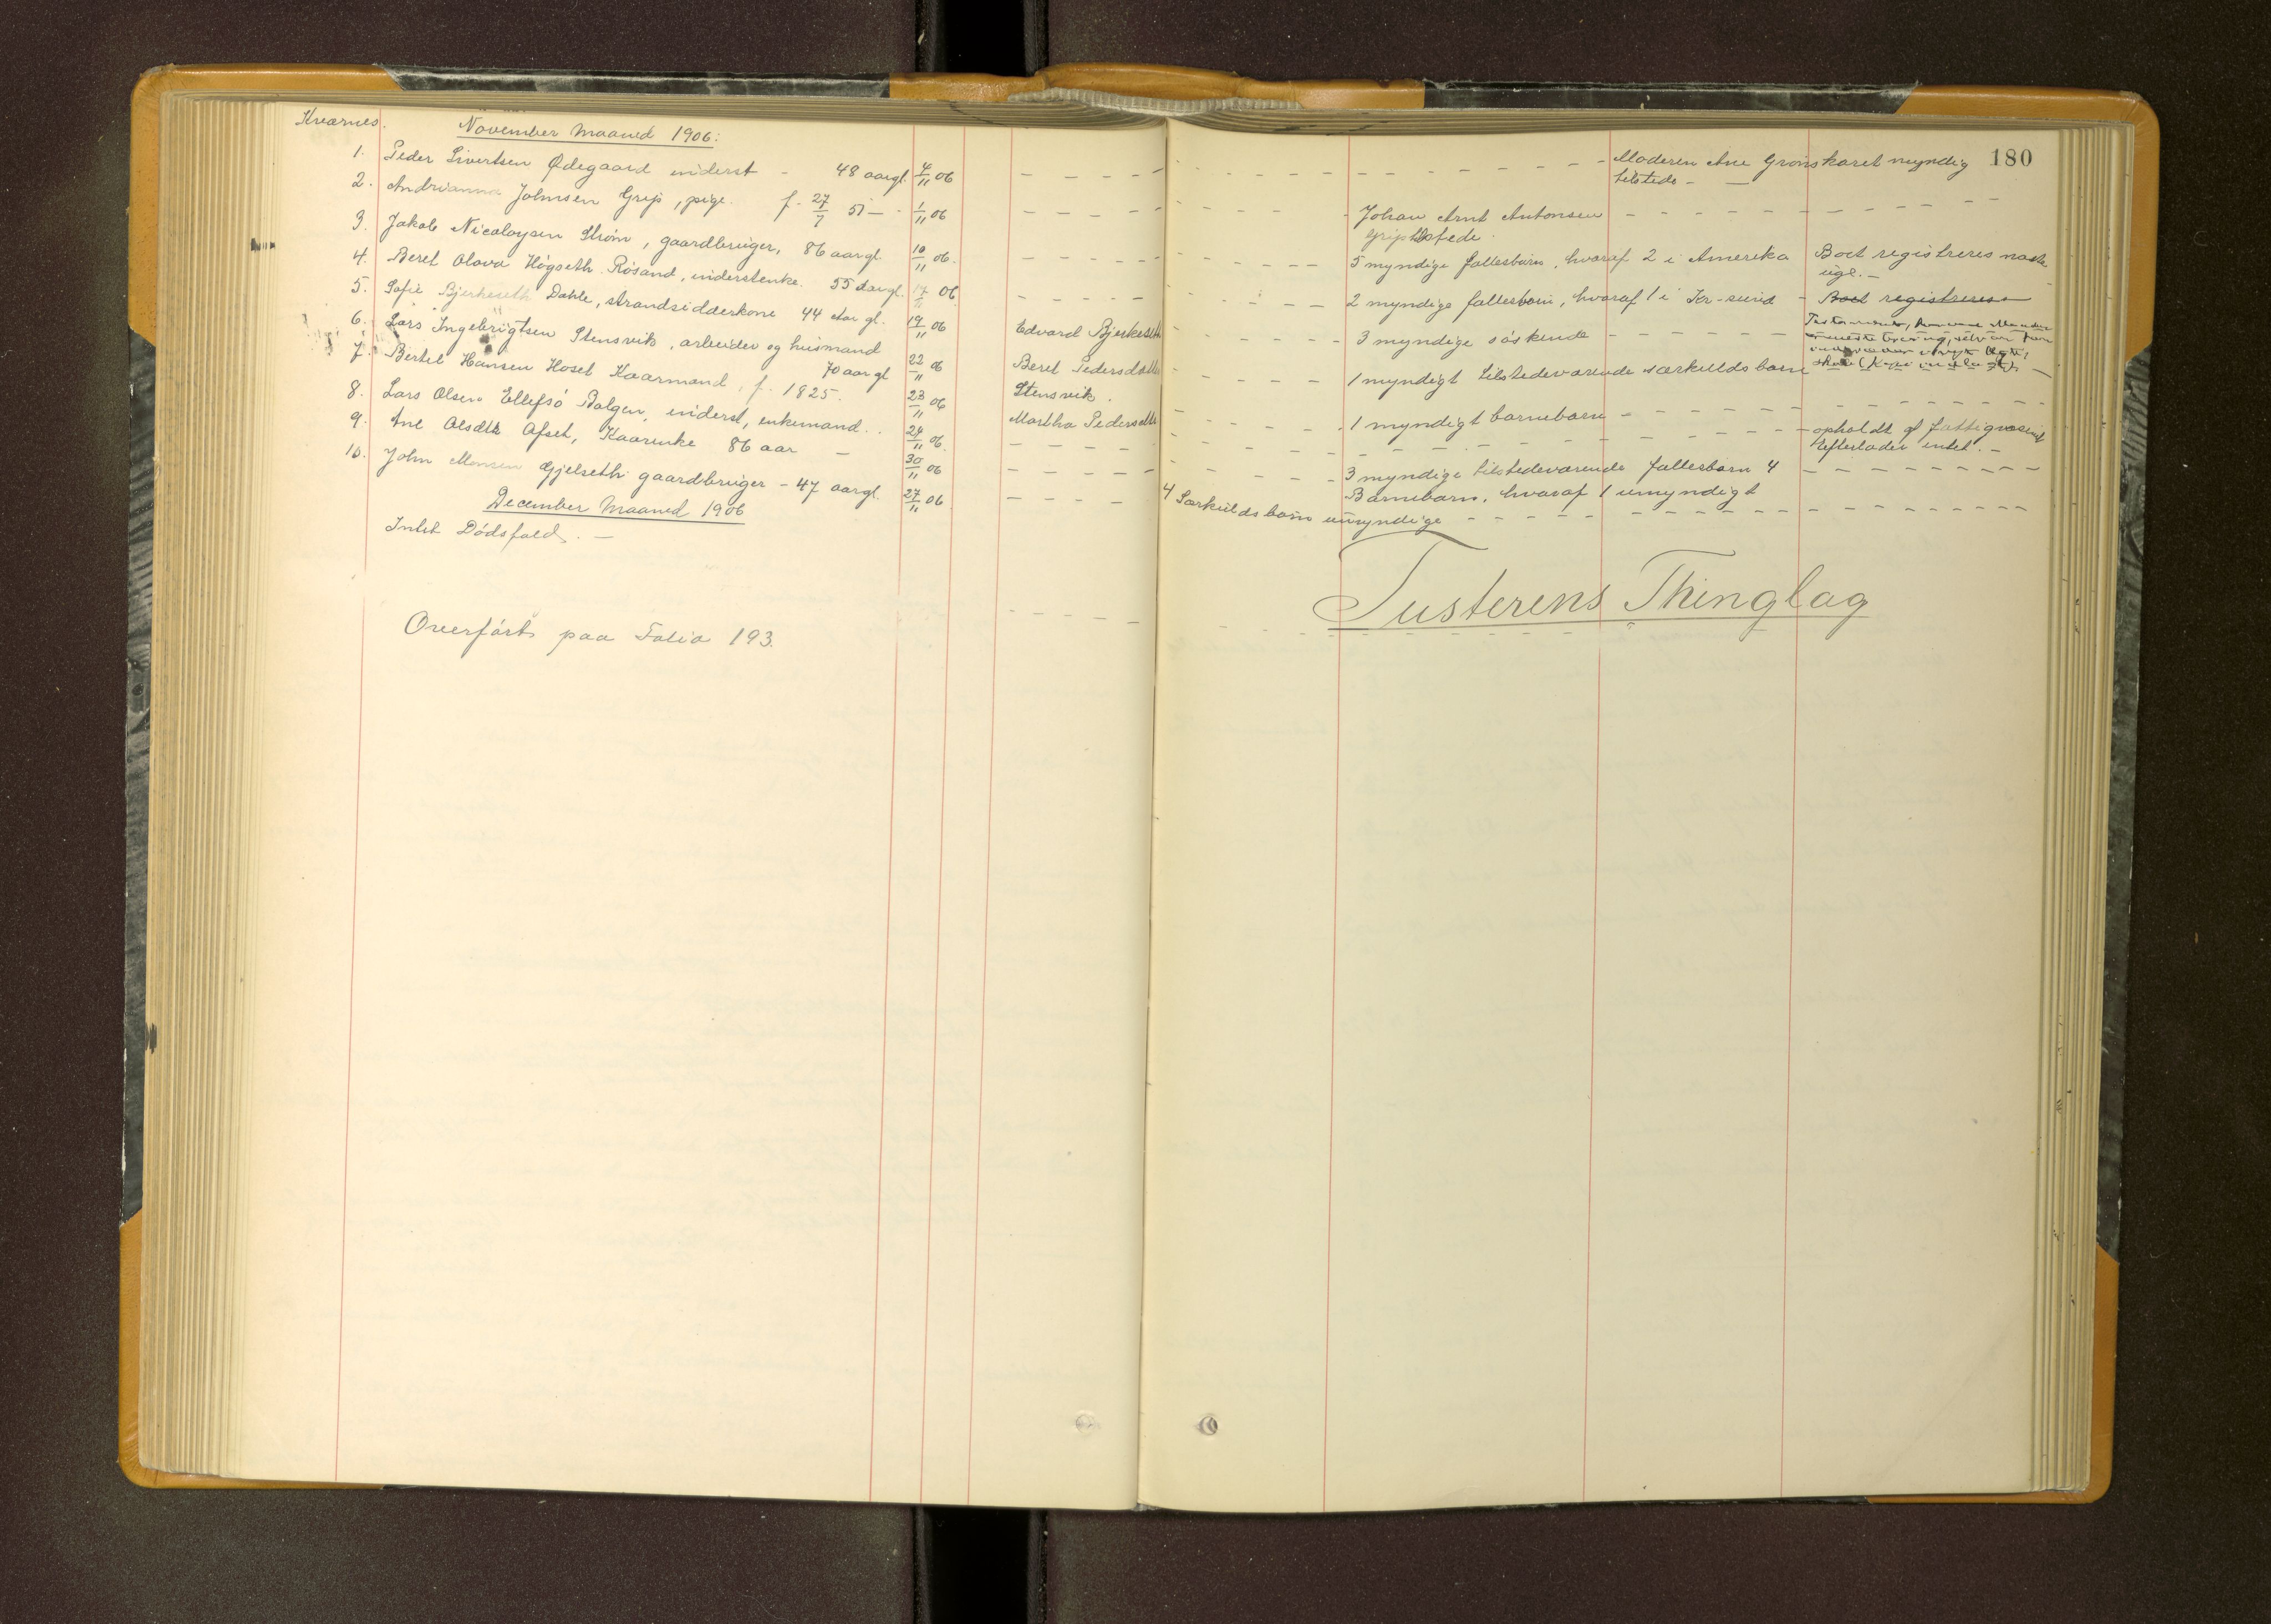 Kværnes.
November Maaned 1906:
1. Peder Sivertsen Ødegaard inderst - 48 aar gl. 4/11 06
2. Andrianna Johnsen Grip, pige. f. 27/7 51 - 1/11 06
3. Jakob Nicolaysen Strøm, gaardbruger, 86 aar gl. 10/11 06.
4. Beret Olava Høgseth Røsand, inderstenke. 55 aar gl. 14/11 06
5. Sofie Bjerkeseth Dahle, strandsidderkone 44 aar gl. 19/11 06
6. Lars Ingebrigtsen Stensvik, arbeider og husmand
70 aar gl 22/11 06
7. Bertel Hansen Hoset Kaarmand, f. 1825. 23/11 06
8. Lars Olsen Ellefsö Bolgen, inderst, enkemand. 24/11 06.
9. Ane Olsdtr Ofset, Kaarenke 86 aar - 30/11 06
10. John Monsen Gjelseth gaardbruger - 47 aar gl. 27/11 06
December Maaned 1906
Intet Dödsfald. -
Overført paa Folio 193.
Edvard Bjerkeseth
Beret Pedersdtr
Stensvik.
Martha Pedersdtr
180
Moderen Ane Grönskaret myndig
tilstede -
Johan Arnt Antonsen
Grip tilstede.
5 myndige fællesbørn, hvoraf 2 i Amerika
Boet registreres
2 myndige fællesbørn, hvoraf 1 i Kr-sund
Boet registreres
3 myndige søskende
1 myndigt tilstedeværende særkuldsbarn
1 myndigt barnebarn
opholdt af fattigvæsenet
Efterlader intet. -
3 myndige tilstedeværende fællesbørn 4
Barnebørn, hvoraf 1 umyndigt
4 Særkuldsbørn umyndige
Tusterens Thinglag